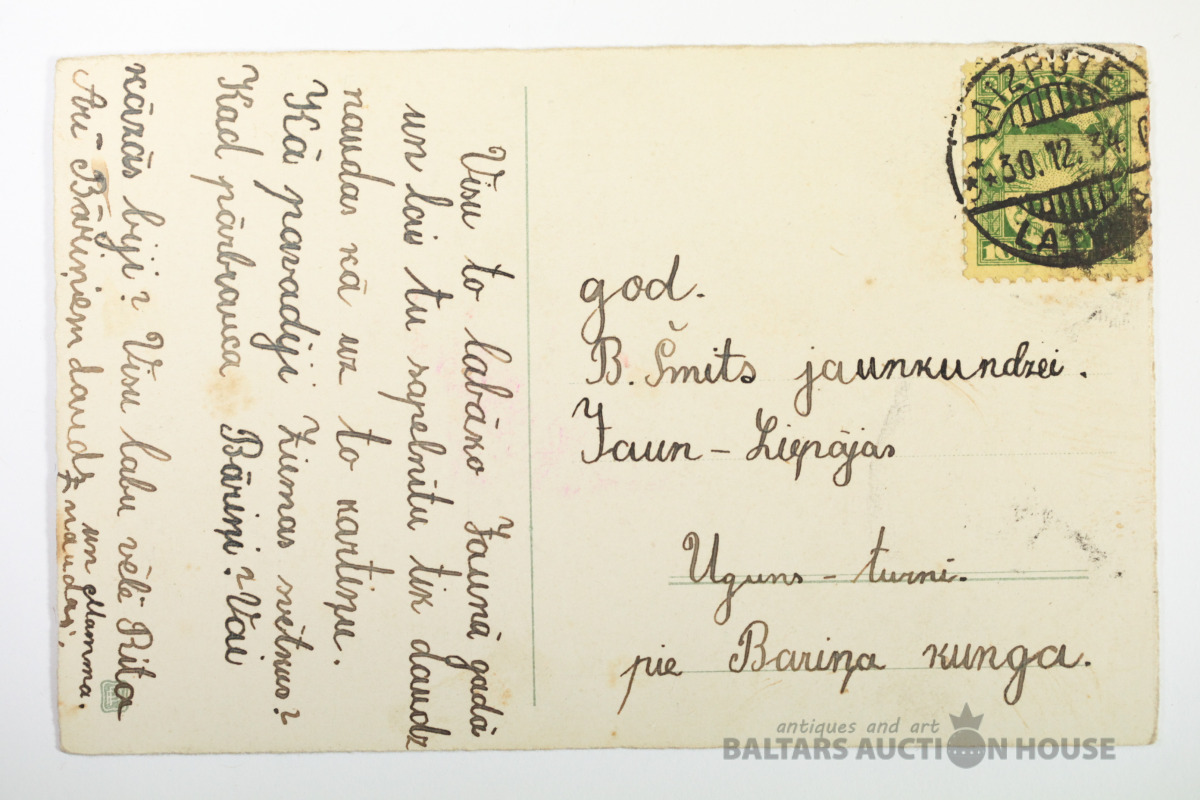 Visu to labāko Jaunā gadā
un lai tu sapelnītu tik daudz
naudas kā uz to kartiņu.
Kā pavadīji Ziemas svētkus?
Kad pārbrauca Bāriņi? Vai
kāzās biji? Visu labu vēlē Rita
un Mamma.
Arī Bāriņiem daudz naudas!
AIZPUTE
30.12.34.
LATV
god.
B. Šmits jaunkundzei.
Jaun-Liepājas
Uguns-turni.
pie Bariņa kunga.
antiques and art
BALTARS AUCTION HOUSE